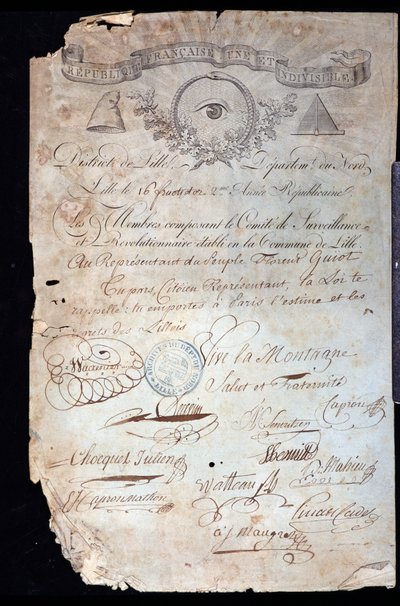 RÉPUBLIQUE FRANÇAISE UNE ET INDIVISIBLE.
District de Lille. Départemt. du Nord
Lille le 16 fructidor 2me Année Républicaine
Les Membres composant le Comité de Surveillance
et Révolutionnaire établi en la Commune de Lille.
Au Représentant du Peuple Florent Guiot
Tu pars, Citoyen Représentant, la Loi te
rappelle: tu emportes à Paris l'estime et les
regrets des Lillois
Vive la Montagne
Salut et Fraternité
ARCHIVES DU DÉPT DU NORD
LILLE
Capron
Chocquet Julien
Watteau
Mahieu
Capron
à j Maugre